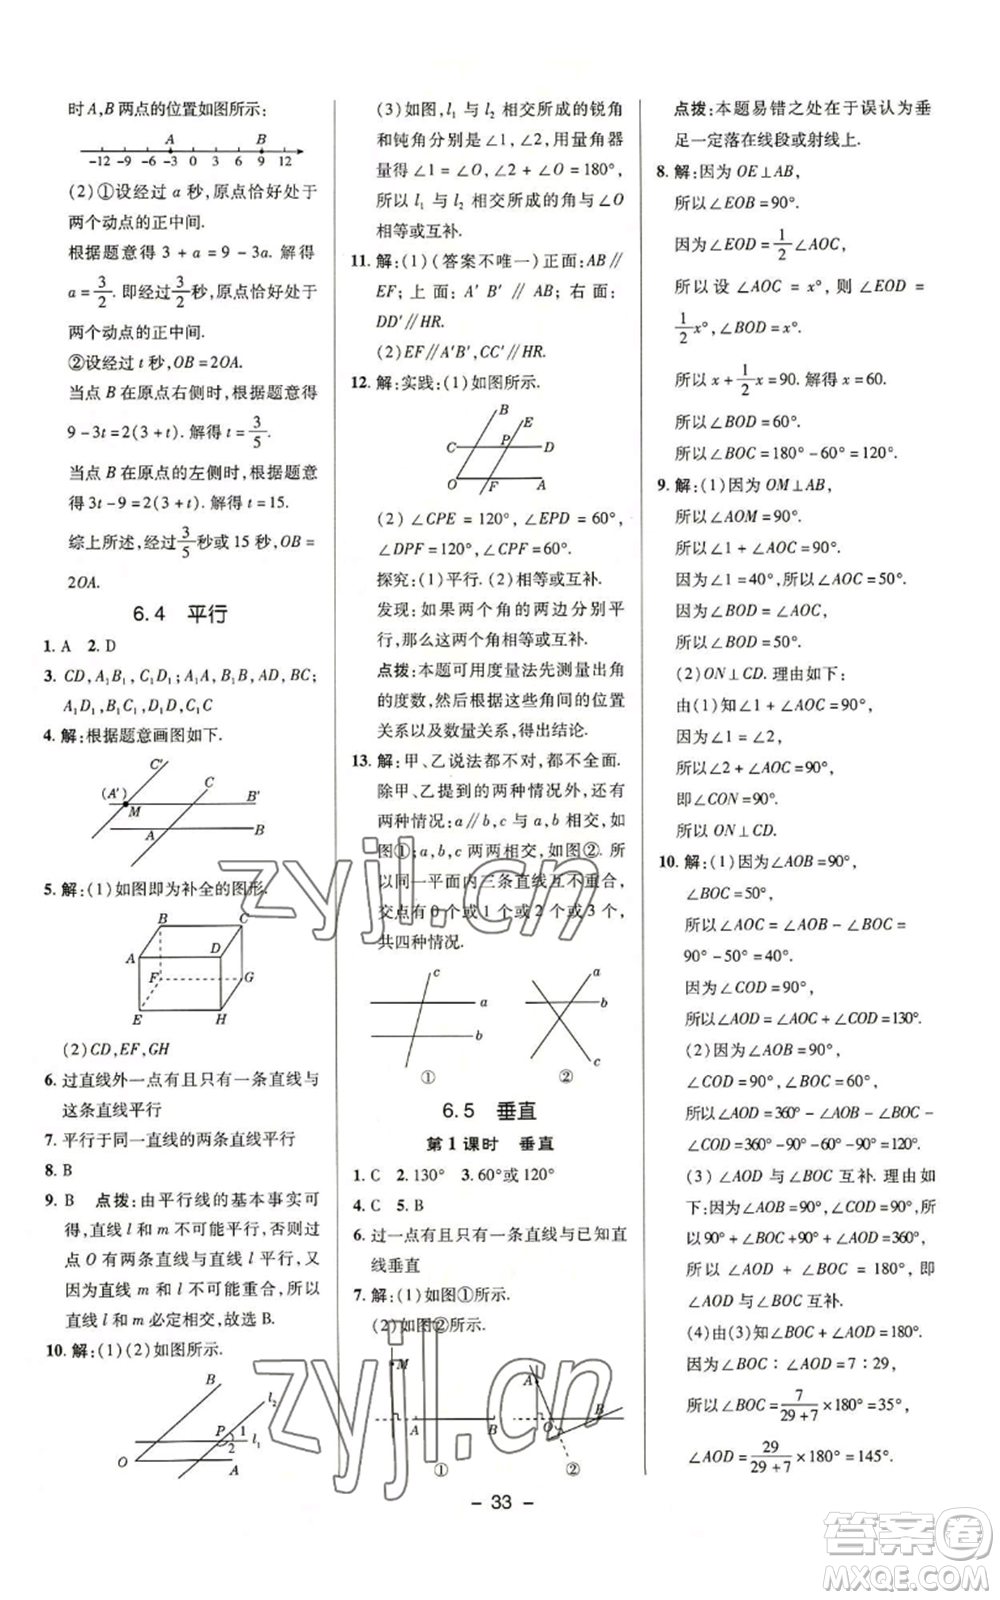 时A,B两点的位置如图所示:
A B
-12 -9 -6 -3 0 3 6 9 12
(2)①设经过a秒,原点恰好处于
两个动点的正中间.
根据题意得3+a=9-3a. 解得
a=3/2. 即经过3/2秒,原点恰好处于
两个动点的正中间.
②设经过t秒,OB=2OA.
当点B在原点右侧时,根据题意得
9-3t=2(3+t). 解得t=3/5.
当点B在原点的左侧时,根据题意
得3t-9=2(3+t). 解得t=15.
综上所述,经过3/5秒或15秒,OB=
2OA.
6.4 平行
1. A 2. D
3. CD,A₁B₁,C₁D₁;A₁C₁,BD,BC;
A₁D₁,B₁C₁,D₁D,C₁C
4. 解:根据题意画图如下.
C′ C
(A′) M B′
A B
5. 解:(1)如图即为补全的图形.
B C
A D
F G
E H
(2)CD,EF,GH
6. 过直线外一点有且只有一条直线与
这条直线平行
7. 平行于同一直线的两条直线平行
8. B
9. B 点拨:由平行线的基本事实可
得,直线l和m不可能平行,否则过
点O有两条直线与直线l平行,又
因为直线m和l不可能重合,所以
直线l和m必定相交,故选B.
10. 解:(1)(2)如图所示.
B l₂
P 1 2 l₁
O A
(3)如图,l₁与l₂相交所成的锐角
和钝角分别是∠1,∠2,用量角器
量得∠1=∠O,∠2+∠O=180°,
所以l₁与l₂相交所成的角与∠O
相等或互补.
11. 解:(1)(答案不唯一)正面:AB∥
EF;上面:A′B′∥AB;右面:
DD′∥HR.
(2)EF∥A′B′,CC′∥HR.
12. 解:实践:(1)如图所示.
B E
C P D
O F A
(2)∠CPE=120°,∠EPD=60°,
∠DPF=120°,∠CPF=60°.
探究:(1)平行.(2)相等或互补.
发现:如果两个角的两边分别平
行,那么这两个角相等或互补.
点拨:本题可用度量法先测量出角
的度数,然后根据这些角间的位置
关系以及数量关系,得出结论.
13. 解:甲、乙说法都不对,都不全面.
除甲、乙提到的两种情况外,还有
两种情况:a∥b,c与a,b相交,如
图①;a,b,c两两相交,如图②. 所
以同一平面内三条直线互不重合,
交点有0个或1个或2个或3个,
共四种情况.
c a b ①
a b c ②
6.5 垂直
第1课时 垂直
1. C 2. 130° 3. 60°或120°
4. C 5. B
6. 过一点有且只有一条直线与已知直
线垂直
7. 解:(1)如图①所示.
(2)如图②所示.
M A B ①
A O B ②
点拨:本题易错之处在于误认为垂
足一定落在线段或射线上.
8. 解:因为OE⊥AB,
所以∠EOB=90°.
因为∠EOD=1/2∠AOC,
所以设∠AOC=x°,则∠EOD=
1/2x°,∠BOD=x°.
所以x+1/2x=90. 解得x=60.
所以∠BOD=60°.
所以∠BOC=180°-60°=120°.
9. 解:(1)因为OM⊥AB,
所以∠AOM=90°.
所以∠1+∠AOC=90°.
因为∠1=40°,所以∠AOC=50°.
因为∠BOD=∠AOC,
所以∠BOD=50°.
(2)ON⊥CD. 理由如下:
由(1)知∠1+∠AOC=90°,
因为∠1=∠2,
所以∠2+∠AOC=90°,
即∠CON=90°.
所以ON⊥CD.
10. 解:(1)因为∠AOB=90°,
∠BOC=50°,
所以∠AOC=∠AOB-∠BOC=
90°-50°=40°.
因为∠COD=90°,
所以∠AOD=∠AOC+∠COD=130°.
(2)因为∠AOB=90°,
∠COD=90°,
所以∠AOD=360°-∠AOB-∠BOC-
∠COD=360°-90°-50°-90°=
130°.
(3)∠AOD与∠BOC互补. 理由如
下:因为∠AOD+∠AOB+∠BOC+
∠COD=360°,∠AOB=∠COD=90°,所
以90°+90°+∠AOD+∠BOC=360°.
所以∠AOD+∠BOC=180°,即
∠AOD与∠BOC互补.
(4)由(3)知∠BOC+∠AOD=180°.
因为∠BOC:∠AOD=7:29,
所以∠BOC=7/(29+7)×180°=35°,
∠AOD=29/(29+7)×180°=145°.
- 33 -
zyjl.cn
zyjl.cn
答案圈
MXQE.COM